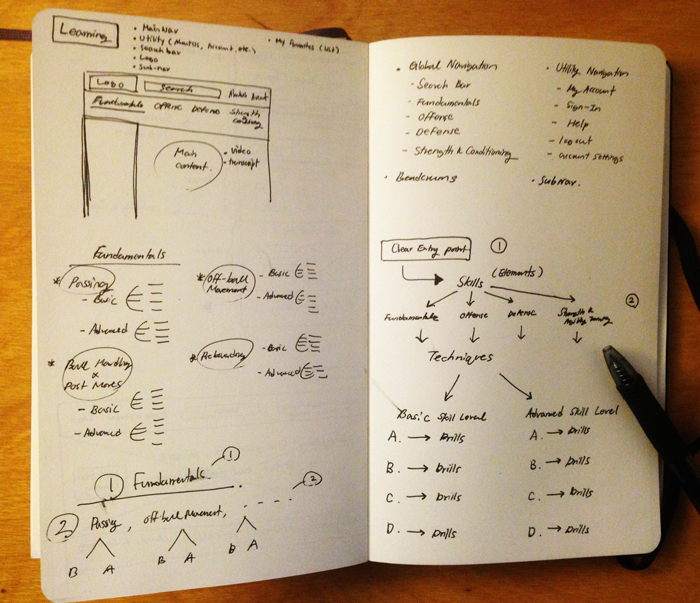 Learning
• Main Nav
• Utility (About us, Account, etc.)
• Search bar
• Logo
• Sub-nav
• My Favorites (List)
LOGO
Search
Fundamentals OFFENSE DEFENSE Strength
Main
Content
• video
• transcript
Fundamentals
* Passing
- Basic
- Advanced
* Ball Handling
&
Post Moves
- Basic
- Advanced
* Off-ball
Movement
- Basic
- Advanced
* Rebounding
- Basic
- Advanced
1 Fundamentals 1
2 Passing, off ball movement, - - - - 2
B A B A B A
• Global Navigation
- Search Bar
- Fundamentals
- Offense
- Defense
- Strength & Conditioning
• Breadcrumbs
• Utility Navigation
- My Account
- Sign-In
- Help
- logout
- account settings
• SubNav.
Clear Entry point 1
Skills (Elements)
2
Fundamentals Offense Defense Strength &
Techniques
Basic Skill Level
A. → Drills
B. → Drills
C. → Drills
D. → Drills
Advanced Skill Level
A. → Drills
B. → Drills
C. → Drills
D. → Drills